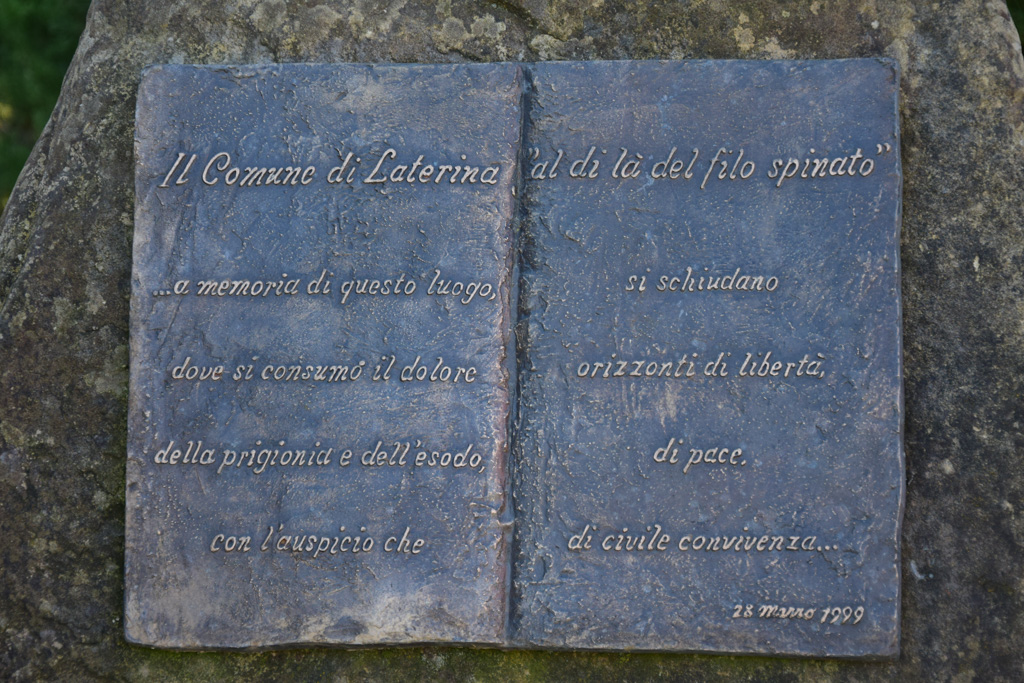 Il Comune di Laterina
...a memoria di questo luogo,
dove si consumó il dolore
della prigionia e dell'esodo,
con l'auspicio che
"al di là del filo spinato"
si schiudano
orizzonti di libertà,
di pace.
di civile convivenza...
28 Marzo 1999